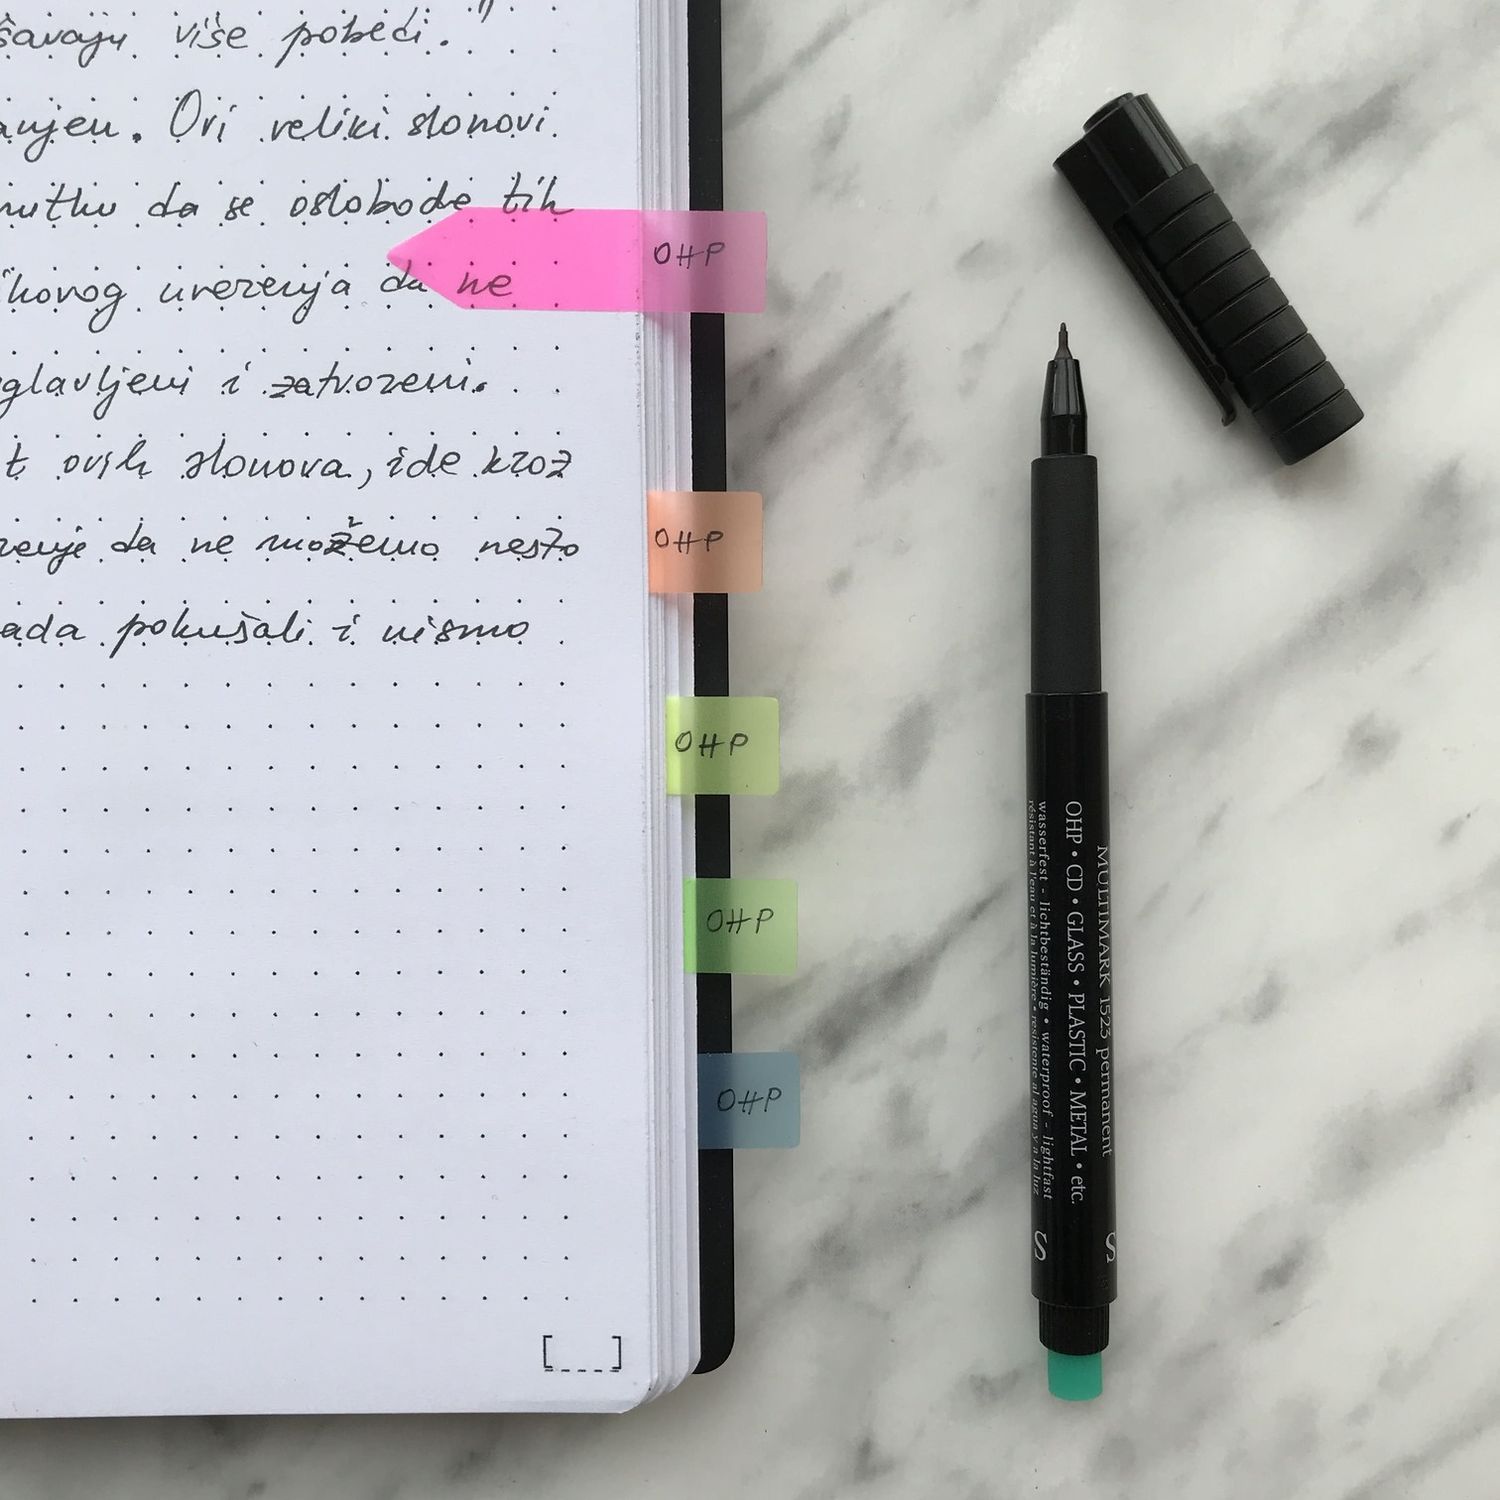 šavaju više pobeći."
anjeu. Ovi veliki slonovi
nutku da se oslobode tih
ikovog uverenja da ne
glavljeni i zatvoreni.
t ovih slonova, ide kroz
renje da ne možemo nesto
ada pokušali i nismo
OHP
OHP
OHP
OHP
OHP
[....]
MULTIMARK 1523 permanent
OHP • CD • GLASS • PLASTIC • METAL • etc.
wasserfest - lichtbeständig • waterproof - lightfast
résistant à l'eau et à la lumière • resistente al agua y a la luz